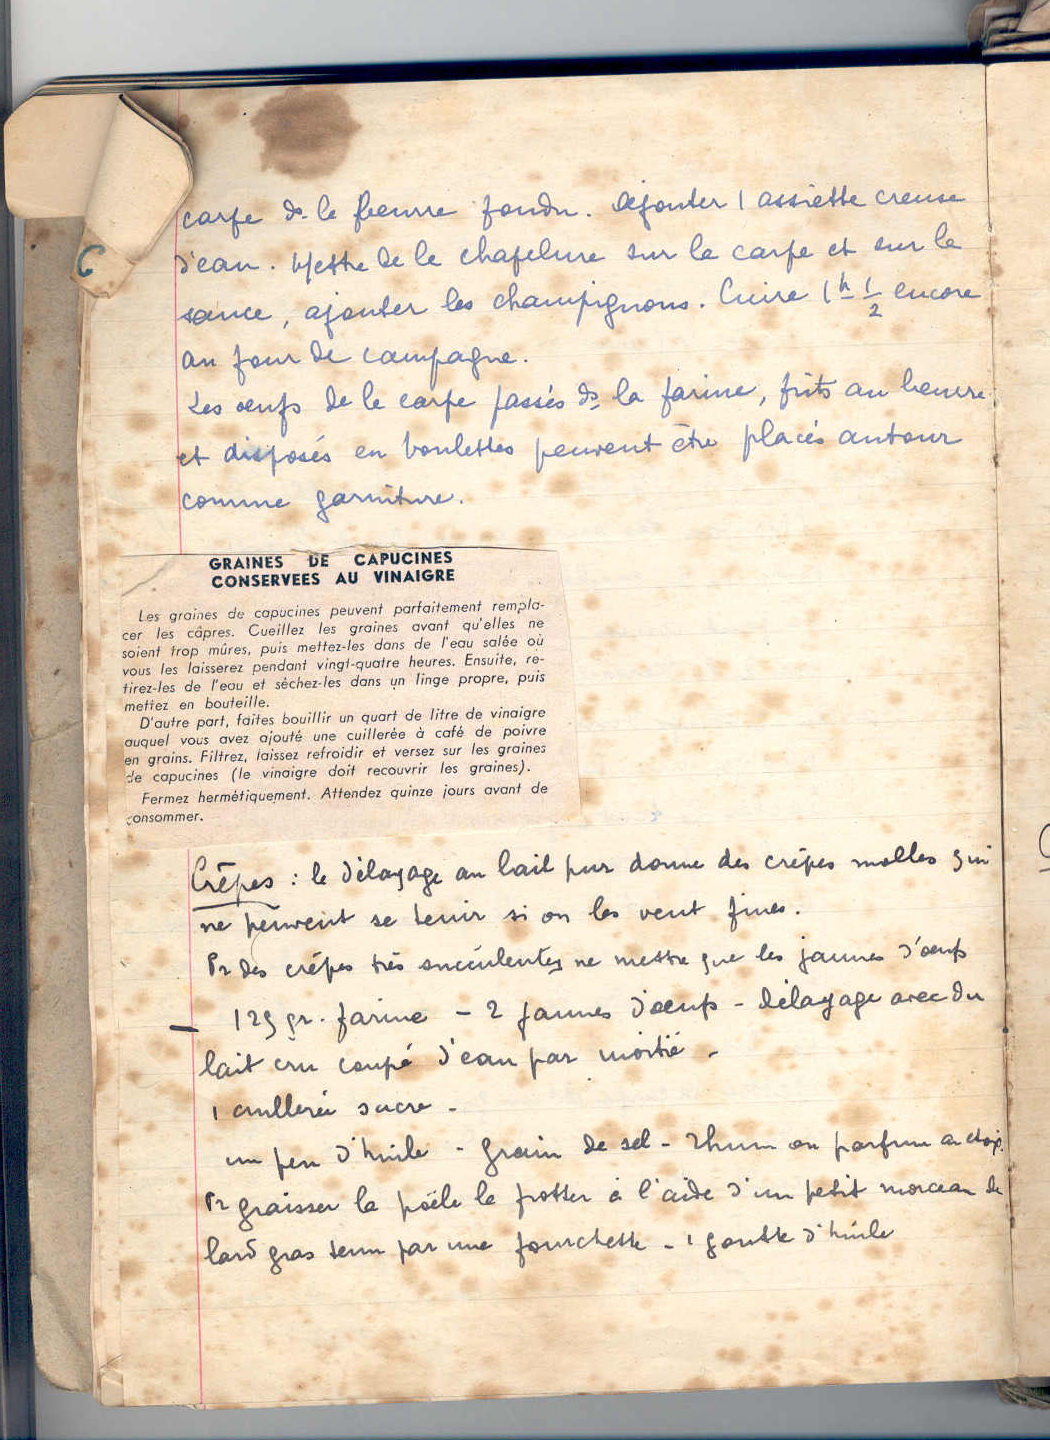 carpe ds le beurre fondu. Ajouter 1 assiette creuse
d'eau. Mettre de la chapelure sur la carpe et sur la
sauce, ajouter les champignons. Cuire 1h 1/2 encore
au four de campagne.
Les œufs de la carpe passés ds la farine, frits au beurre
et disposés en boulettes peuvent être placés autour
comme garniture.
C
GRAINES DE CAPUCINES
CONSERVEES AU VINAIGRE
Les graines de capucines peuvent parfaitement rempla-
cer les câpres. Cueillez les graines avant qu'elles ne
soient trop mûres, puis mettez-les dans de l'eau salée où
vous les laisserez pendant vingt-quatre heures. Ensuite, re-
tirez-les de l'eau et séchez-les dans un linge propre, puis
mettez en bouteille.
D'autre part, faites bouillir un quart de litre de vinaigre
auquel vous avez ajouté une cuillerée à café de poivre
en grains. Filtrez, laissez refroidir et versez sur les graines
de capucines (le vinaigre doit recouvrir les graines).
Fermez hermétiquement. Attendez quinze jours avant de
consommer.
Crêpes : le délayage au lait pur donne des crêpes molles qui
ne peuvent se tenir si on les veut fines.
Pr des crêpes très succulentes ne mettre que les jaunes d'œufs
— 125 gr. farine – 2 jaunes d'œufs – délayage avec du
lait cru coupé d'eau par moitié –
1 cuillerée sucre –
un peu d'huile – grain de sel – rhum ou parfum au choix.
Pr graisser la poêle la frotter à l'aide d'un petit morceau de
lard gras tenu par une fourchette – 1 goutte d'huile